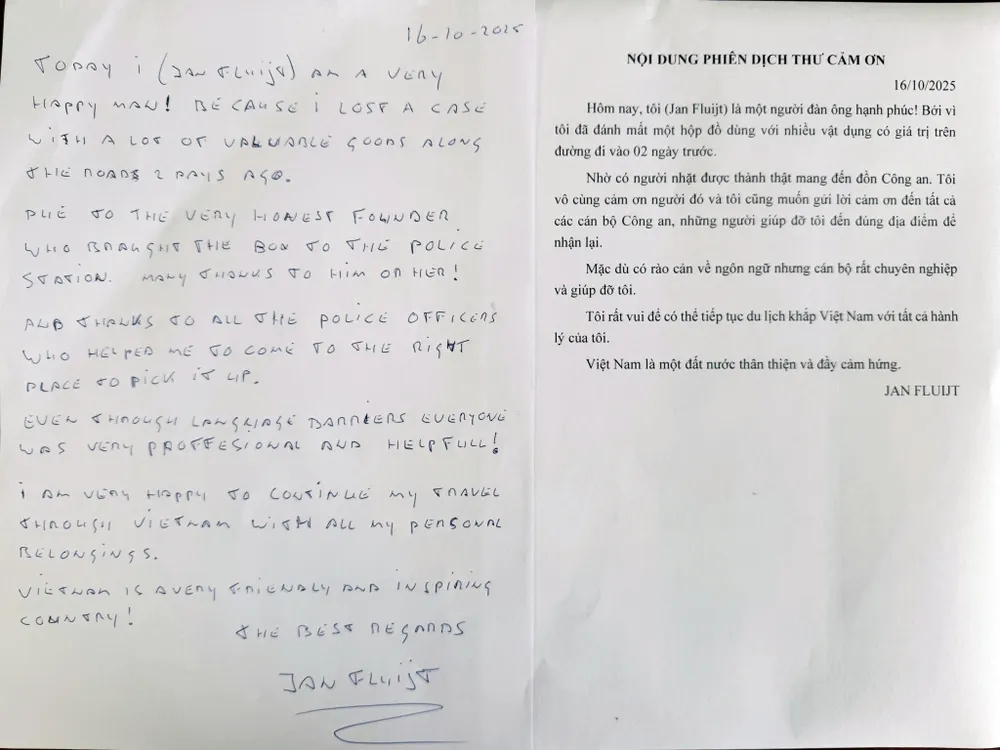 16-10-2025
TODAY I (JAN FLUIJT) AM A VERY
HAPPY MAN! BECAUSE I LOST A CASE
WITH A LOT OF VALUABLE GOODS ALONG
THE ROADS 2 DAYS AGO.
DUE TO THE VERY HONEST FOUNDER
WHO BRAUGHT THE BOX TO THE POLICE
STATION. MANY THANKS TO HIM OR HER!
AND THANKS TO ALL THE POLICE OFFICERS
WHO HELPED ME TO COME TO THE RIGHT
PLACE TO PICK IT UP.
EVEN THROUGH LANGUAGE BARRIERS EVERYONE
WAS VERY PROFFESIONAL AND HELPFULL!
I AM VERY HAPPY TO CONTINUE MY TRAVEL
THROUGH VIETNAM WITH ALL MY PERSONAL
BELONGINGS.
VIETNAM IS A VERY FRIENDLY AND INSPIRING
COUNTRY!
THE BEST REGARDS
JAN FLUIJT
NỘI DUNG PHIÊN DỊCH THƯ CẢM ƠN
16/10/2025
Hôm nay, tôi (Jan Fluijt) là một người đàn ông hạnh phúc! Bởi vì
tôi đã đánh mất một hộp đồ dùng với nhiều vật dụng có giá trị trên
đường đi vào 02 ngày trước.
Nhờ có người nhặt được thành thật mang đến đồn Công an. Tôi
vô cùng cảm ơn người đó và tôi cũng muốn gửi lời cảm ơn đến tất cả
các cán bộ Công an, những người giúp đỡ tôi đến đúng địa điểm để
nhận lại.
Mặc dù có rào cản về ngôn ngữ nhưng cán bộ rất chuyên nghiệp
và giúp đỡ tôi.
Tôi rất vui để có thể tiếp tục du lịch khắp Việt Nam với tất cả hành
lý của tôi.
Việt Nam là một đất nước thân thiện và đầy cảm hứng.
JAN FLUIJT